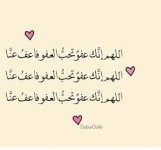 اللهم إنّك عفوٌ تحبُّ العفو فاعفُ عنَّا
اللهم إنّك عفوٌ تحبُّ العفو فاعفُ عنَّا
اللهم إنّك عفوٌ تحبُّ العفو فاعفُ عنَّا